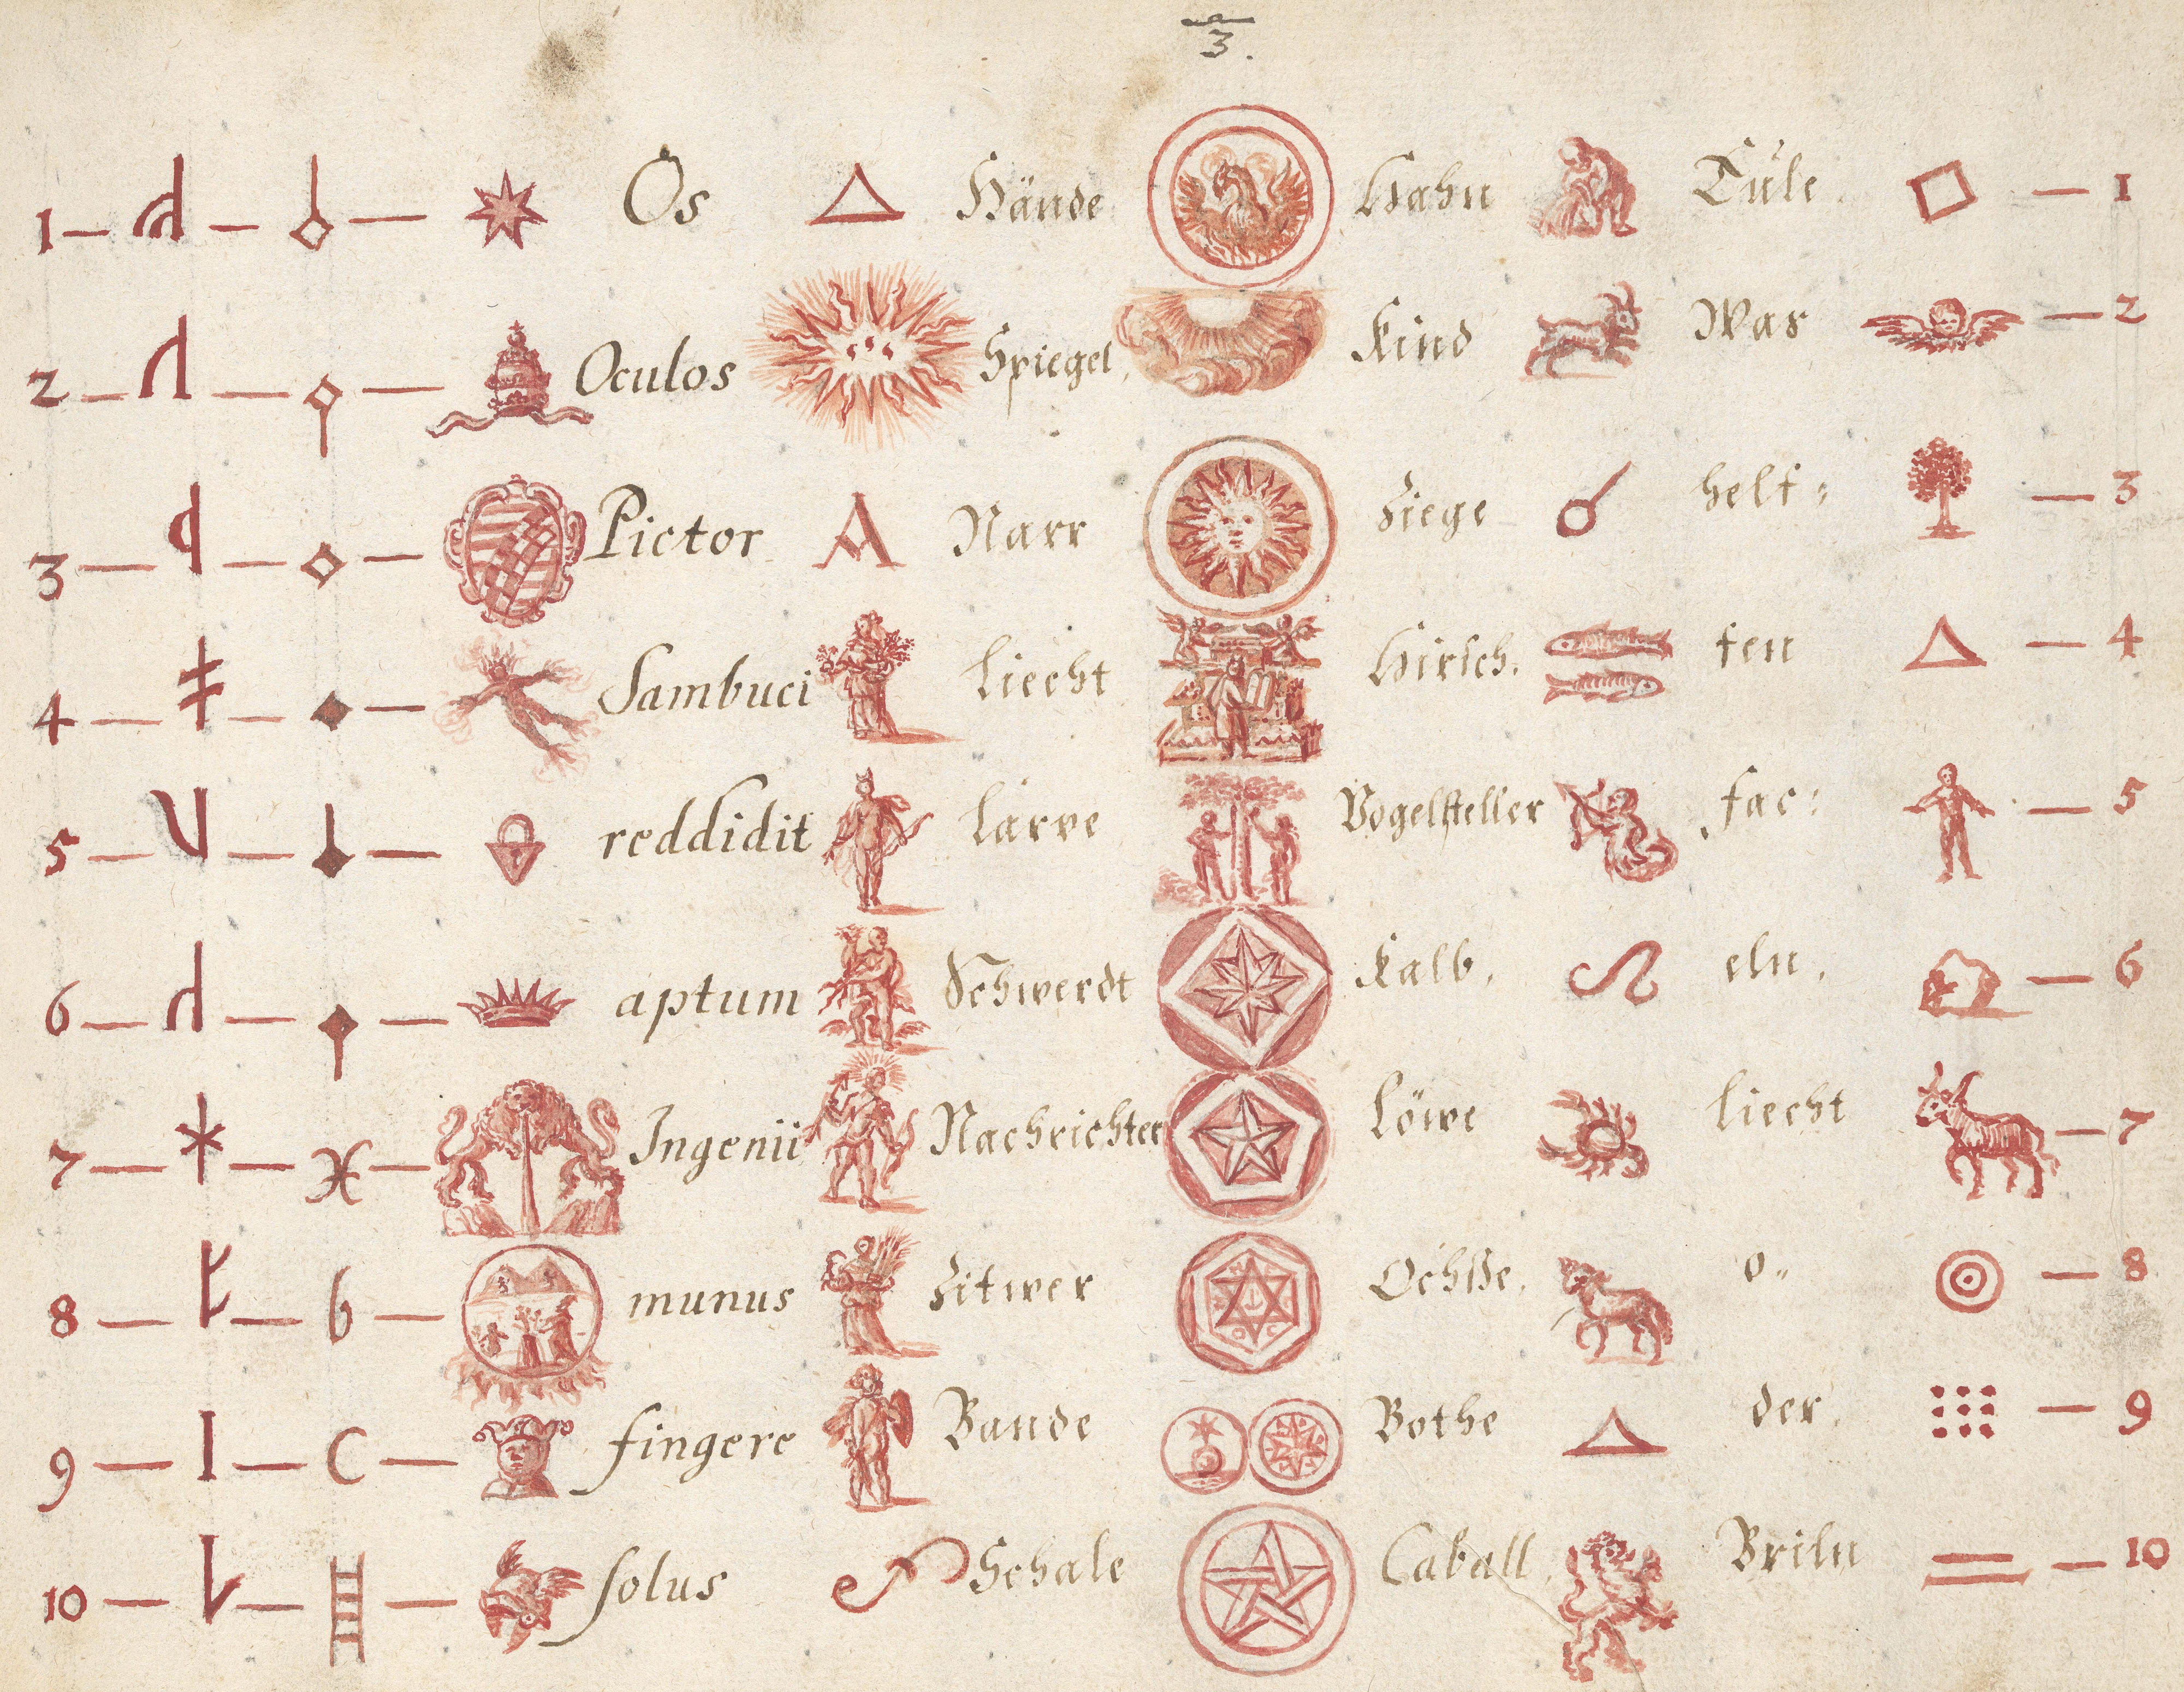 a
3.
1 Os Hände Hahn Eüle. 1
2 Oculos Spiegel, Kind Was 2
3 Pictor A Narr Ziege helf: 3
4 Sambuci Liecht Hirsch. fen 4
5 reddidit Larve Vogelsteller fac: 5
6 aptum Schwerdt Kalb. eln. 6
7 Ingenii Nachrichter Löwe liecht 7
8 b munus Zitwer Ochße. o„ 8
9 C fingere Bande Bothe der. 9
10 solus Schale Caball. Briln 10